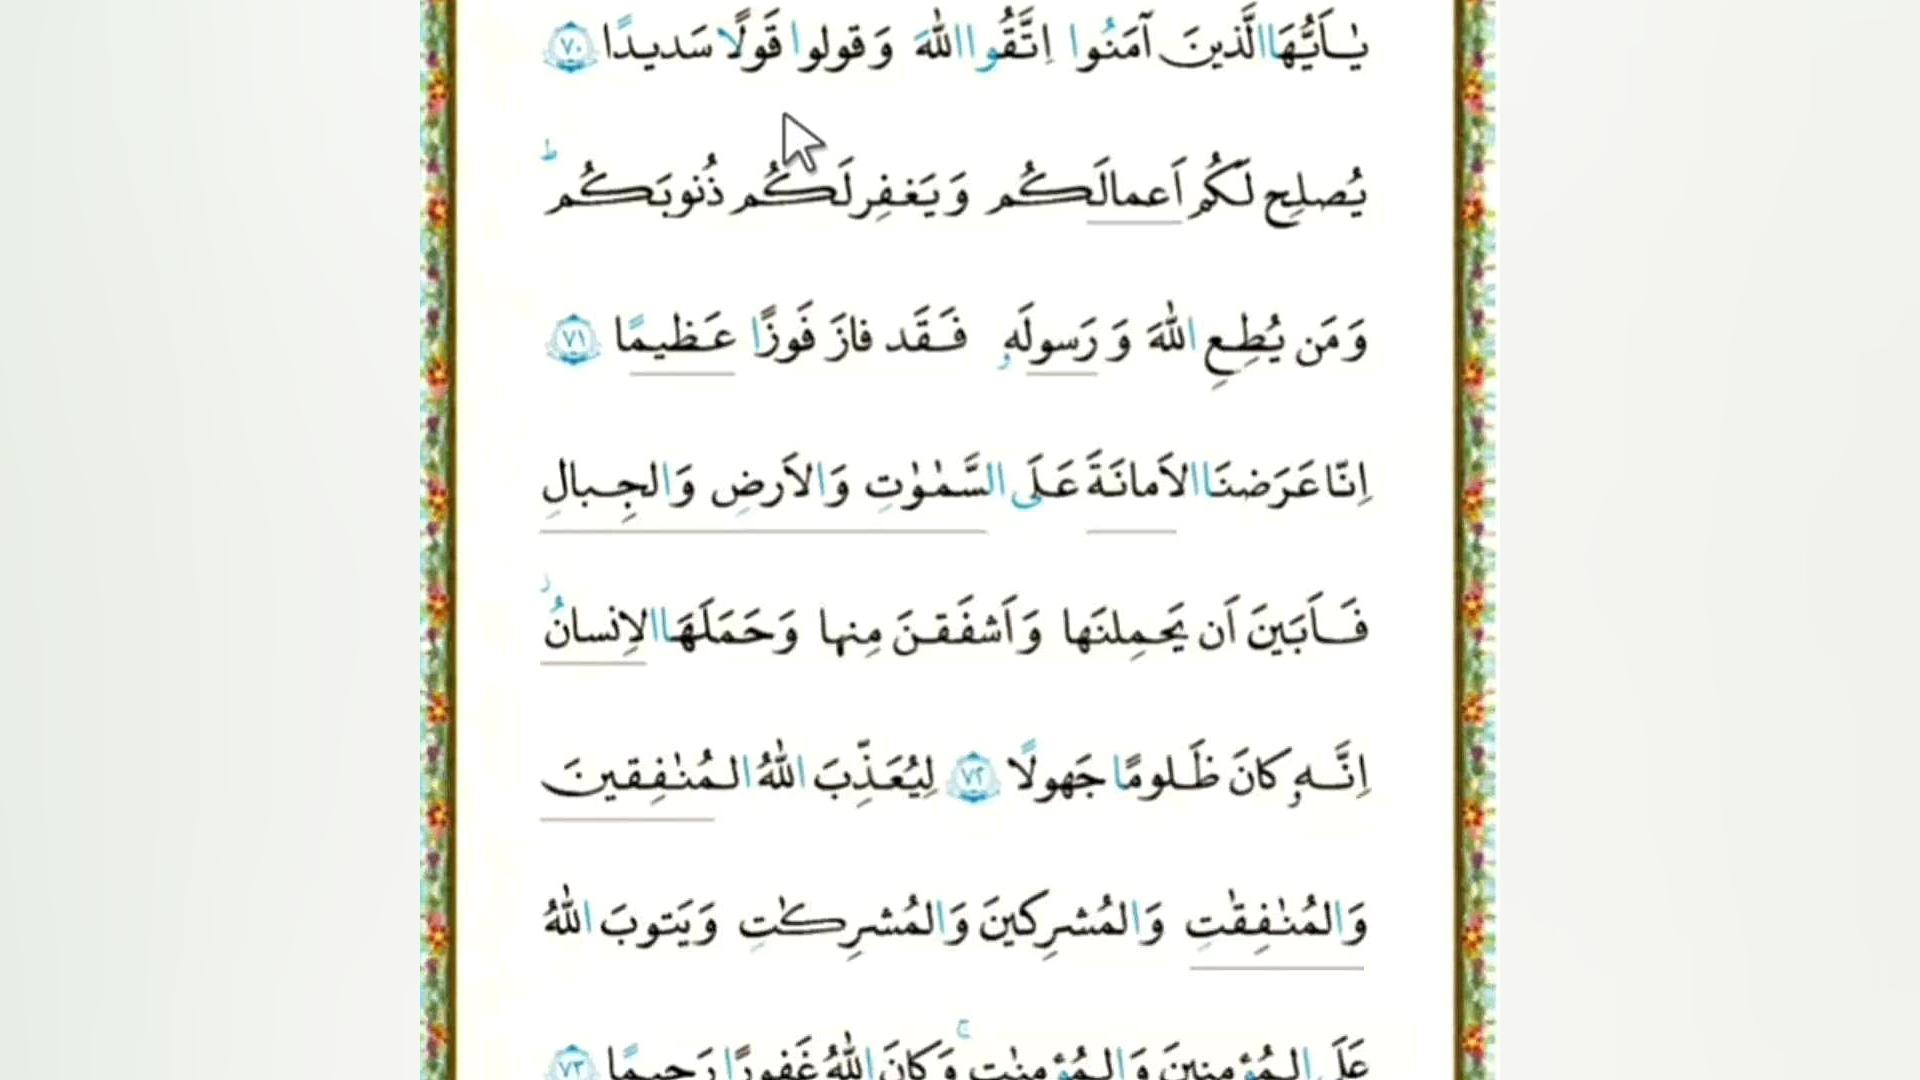 يٰـاَيُّهَا الَّذينَ آمَنُوا اِتَّقُوا اللّٰهَ وَ قولوا قَولًا سَديدًا ٧٠
يُصلِح لَكُم اَعمالَكُم وَ يَغفِر لَكُم ذُنوبَكُم ط
وَ مَن يُطِعِ اللّٰهَ وَ رَسولَهو فَـقَد فازَ فَوزًا عَـظيمًا ٧١
اِنّا عَرَضنَا الاَمانَةَ عَـلَى السَّمٰوٰتِ وَ الاَرضِ وَ الجِـبالِ
فَـاَبَينَ اَن يَحـمِلنَها وَ اَشفَقـنَ مِنها وَ حَمَلَهَا الاِنسانُ ز
اِنَّـهو كانَ ظَـلومًا جَهولًا ٧٢ لِيُعَـذِّبَ اللّٰهُ المُنٰفِقينَ
وَ المُنٰفِقٰتِ وَ المُشرِكينَ وَ المُشرِكٰتِ وَ يَتوبَ اللّٰهُ
عَلَى المُؤمِنينَ وَ المُؤمِنٰتِ ج وَ كانَ اللّٰهُ غَفورًا رَحيـمًا ٧٣